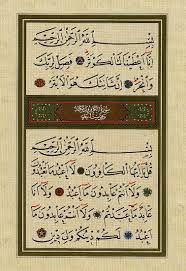 بِسْمِ اللَّهِ الرَّحْمَنِ الرَّحِيمِ
إِنَّا أَعْطَيْنَاكَ الْكَوْثَرَ فَصَلِّ لِرَبِّكَ
وَانْحَرْ إِنَّ شَانِئَكَ هُوَ الْأَبْتَرُ
بِسْمِ اللَّهِ الرَّحْمَنِ الرَّحِيمِ
قُلْ يَا أَيُّهَا الْكَافِرُونَ لَا أَعْبُدُ مَا
تَعْبُدُونَ وَلَا أَنْتُمْ عَابِدُونَ مَا أَعْبُدُ وَلَا أَنَا
عَابِدٌ مَا عَبَدْتُمْ وَلَا أَنْتُمْ عَابِدُونَ مَا
أَعْبُدُ لَكُمْ دِينُكُمْ وَلِيَ دِينِ